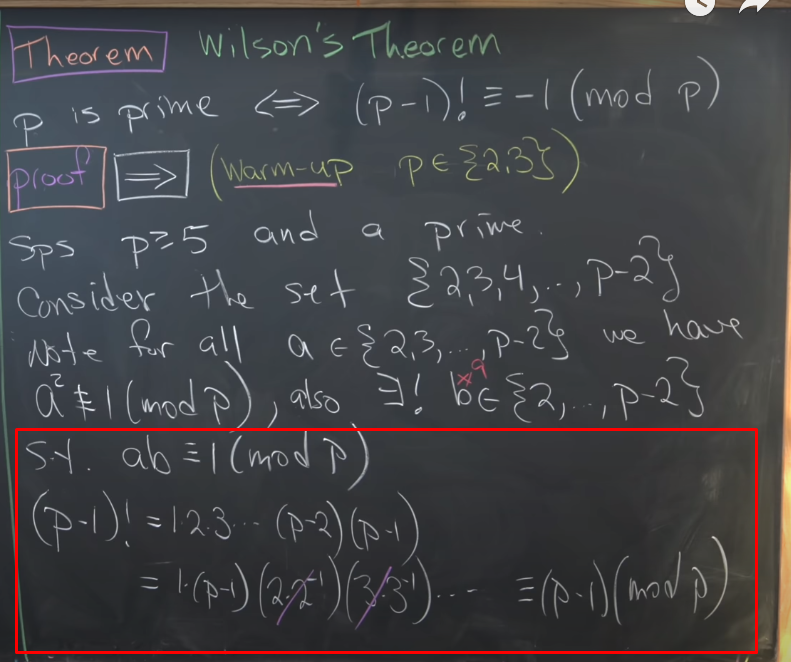 Theorem Wilson's Theorem
p is prime ⟺ (p-1)! ≡ -1 (mod p)
proof ⟹ (Warm-up p ∈ {2,3})
Sps p ≥ 5 and a prime.
Consider the set {2,3,4,..,p-2}
Note for all a ∈ {2,3,...,p-2} we have
a² ≢ 1 (mod p), also ∃! b ∈ {2,..,p-2}
s.t. ab ≡ 1 (mod p)
(p-1)! = 1·2·3··· (p-2)(p-1)
= 1·(p-1)(2·2⁻¹)(3·3⁻¹)···· ≡ (p-1)(mod p)